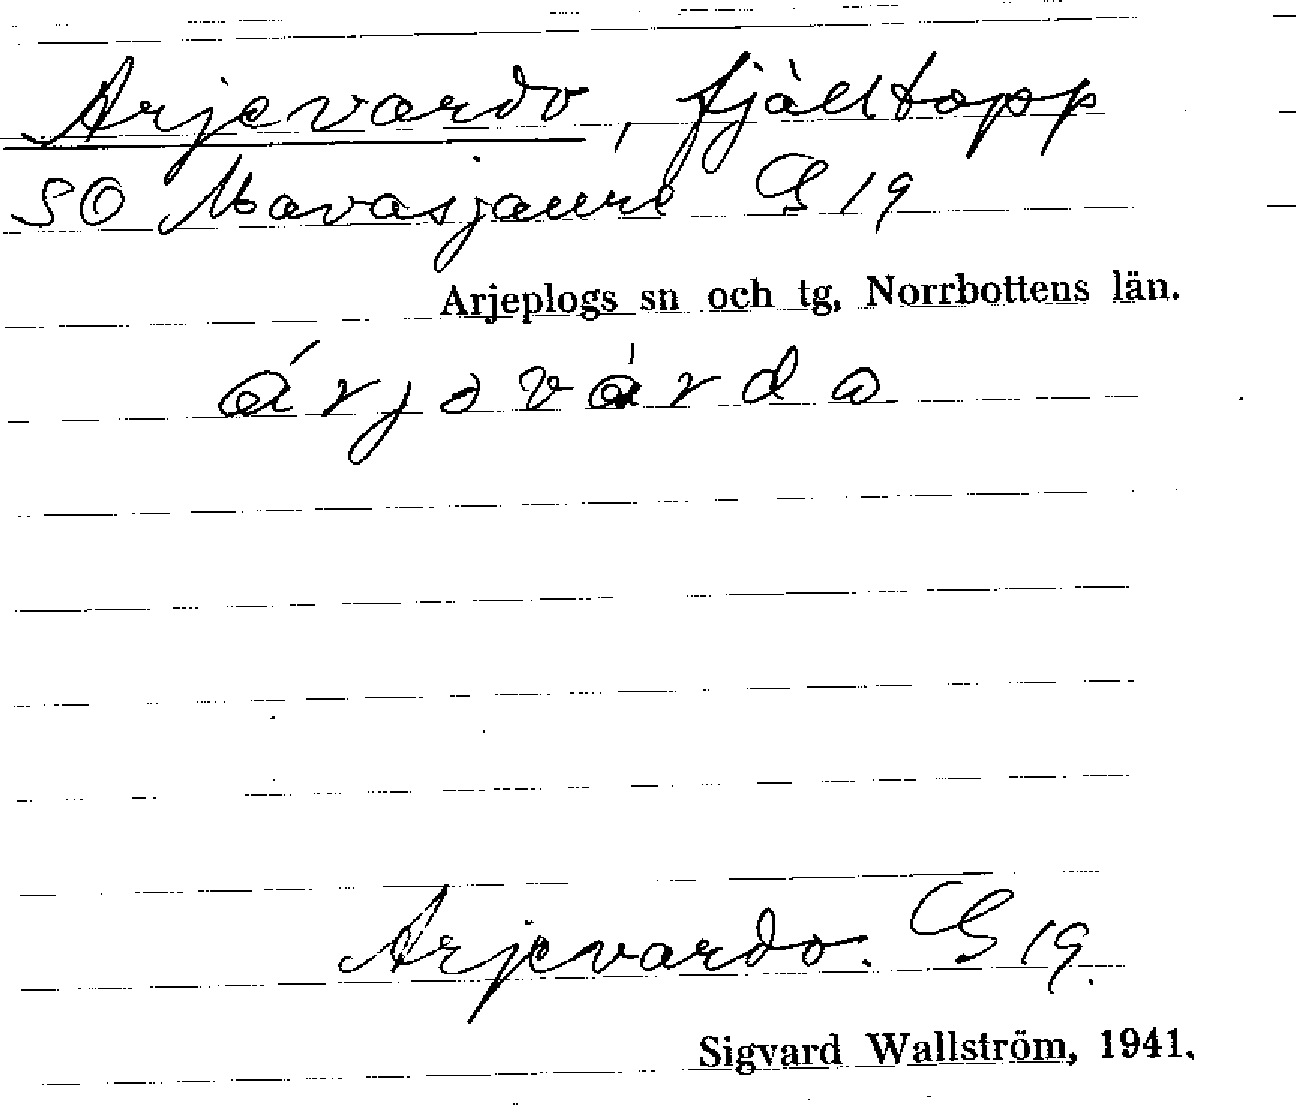 Arjevardo, fjälltopp
SO Mavasjaure G 19
Arjeplogs sn och tg, Norrbottens län.
árjəvárdo
Arjevardo. G 19.
Sigvard Wallström, 1941.